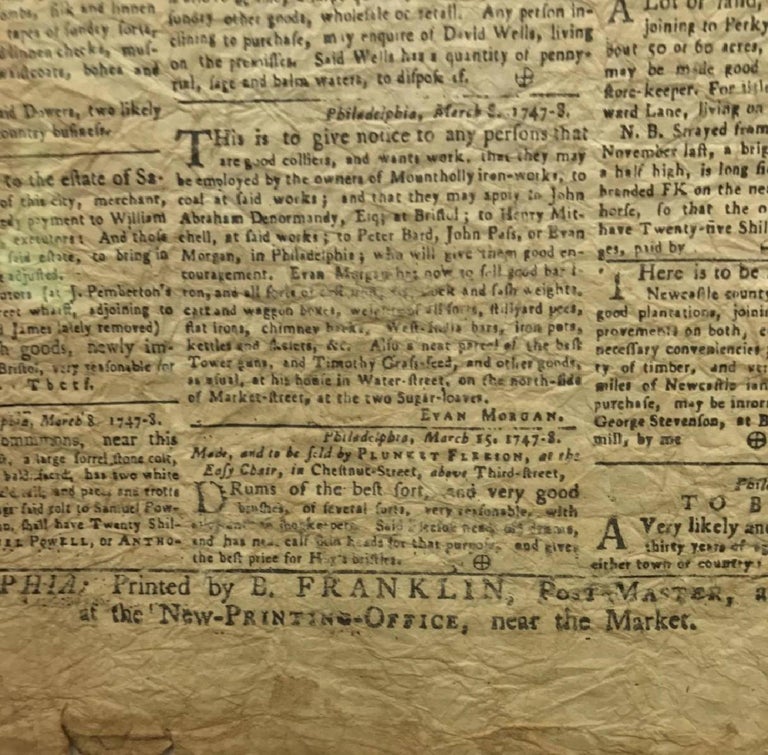 ombs, silk and linnen
tapes of sundry sorts,
linnen checks, mus-
waistcoats, bohea and
aid Dowers, two likely
country business.
to the estate of Sa-
of this city, merchant,
payment to William
executors: And those
said estate, to bring in
adjusted.
(at J. Pemberton's
wharff, adjoining to
James lately removed)
h goods, newly im-
Bristol, very reasonable for
T b c t f.
phia, March 8. 1747-8.
ommons, near this
a large sorrel stone colt,
bald faced, has two white
and paces and trotts
said colt to Samuel Pow-
shall have Twenty Shil-
POWELL, or ANTHO-
sundry other goods, wholesale or retail. Any person in-
clining to purchase, may enquire of David Wells, living
on the premisses. Said Wells has a quantity of penny-
rial, sage and balm waters, to dispose of.
Philadelphia, March 8. 1747-8.
THis is to give notice to any persons that
are good colliers, and wants work, that they may
be employed by the owners of Mountholly iron-works, to
coal at said works; and that they may apply to John
Abraham Denormandy, Esq; at Bristol; to Henry Mit-
chell, at said works; to Peter Bard, John Pass, or Evan
Morgan, in Philadelphia; who will give them good en-
couragement. Evan Morgan has now to sell good bar i-
ron, and all sorts of cast and sash weights,
cart and waggon boxes, weights of all sorts, stillyard pees,
flat irons, chimney backs, West-India bars, iron pots,
kettles and skillets, &c. Also a neat parcel of the best
Tower guns, and Timothy Grass-seed, and other goods,
as usual, at his house in Water-street, on the north-side
of Market-street, at the two Sugar-loaves.
EVAN MORGAN.
Philadelphia, March 15. 1747-8.
Made, and to be sold by PLUNKET FLEESON, at the
Easy Chair, in Chestnut-Street, above Third-street,
DRums of the best sort, and very good
brushes, of several sorts, very reasonable, with
Said Fleeson
and has calf skin heads for that purpose, and gives
the best price for Hog's bristles.
A Lot of land,
joining to Perky
bout 50 or 60 acres,
may be made good
store-keeper. For title
ward Lane, living on
N. B. Strayed from
November last, a brig
a half high, is long
branded FK on the nea
horse, so that the o
have Twenty-five Shil
ges, paid by
THere is to be
Newcastle county
good plantations, joini
provements on both,
necessary conveniencies
ty of timber, and
miles of Newcastle
purchase, may be infor
George Stevenson, at B
mill, by me
Phila
TO B
A Very likely and
thirty years of age
either town or country:
PHIA: Printed by B. FRANKLIN, POST-MASTER, a
at the NEW-PRINTING-OFFICE, near the Market.